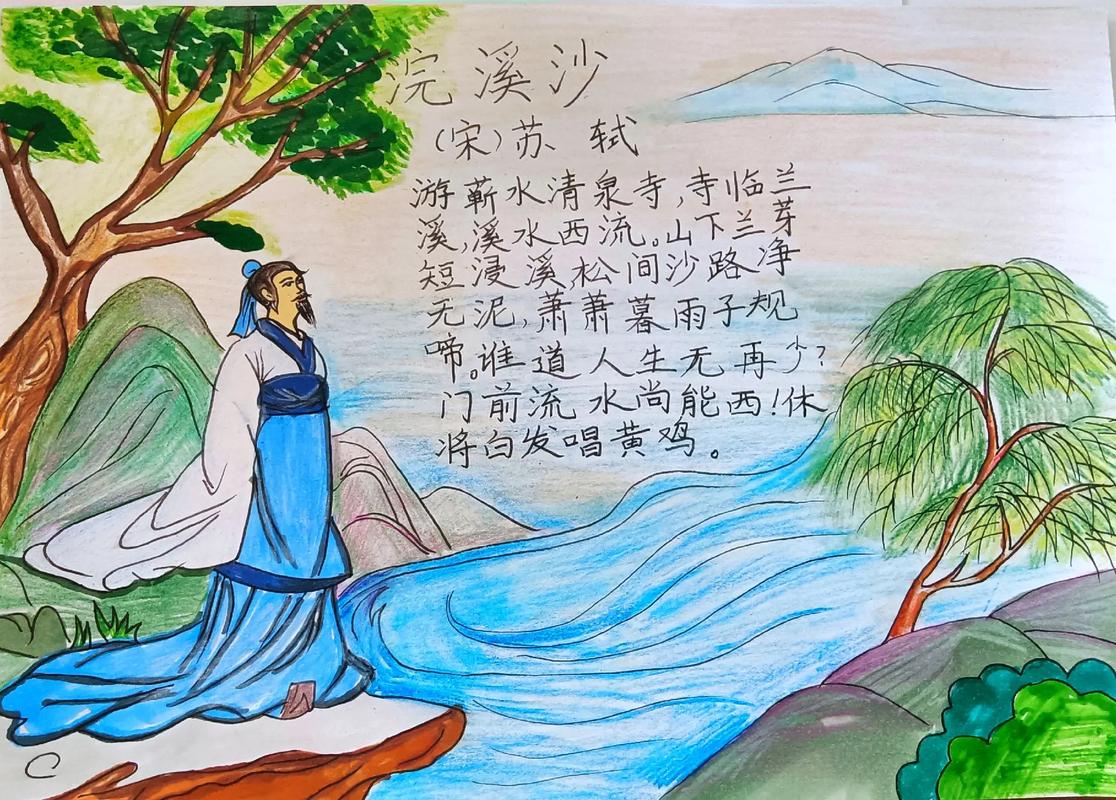 浣溪沙
(宋)苏轼
游蕲水清泉寺,寺临兰
溪,溪水西流。山下兰芽
短浸溪,松间沙路净
无泥,萧萧暮雨子规
啼。谁道人生无再少?
门前流水尚能西!休
将白发唱黄鸡。